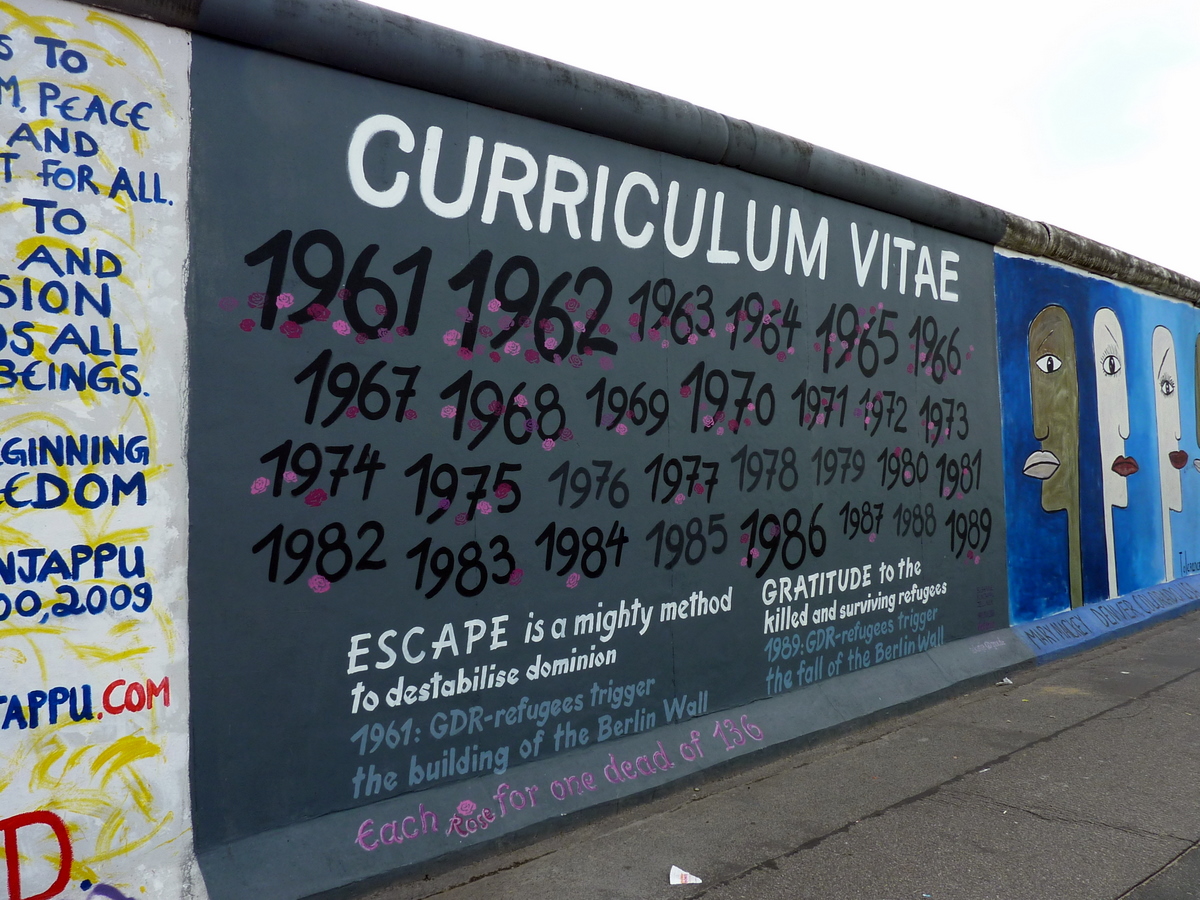 TO
PEACE
AND
FOR ALL.
TO
AND
ALL
BEINGS.
2009
.COM
D.
CURRICULUM VITAE
1961 1962 1963 1964 1965 1966
1967 1968 1969 1970 1971 1972 1973
1974 1975 1976 1977 1978 1979 1980 1981
1982 1983 1984 1985 1986 1987 1988 1989
ESCAPE is a mighty method
to destabilise dominion
1961: GDR-refugees trigger
the building of the Berlin Wall
GRATITUDE to the
killed and surviving refugees
1989: GDR-refugees trigger
the fall of the Berlin Wall
Each Rose for one dead of 136
DENVER